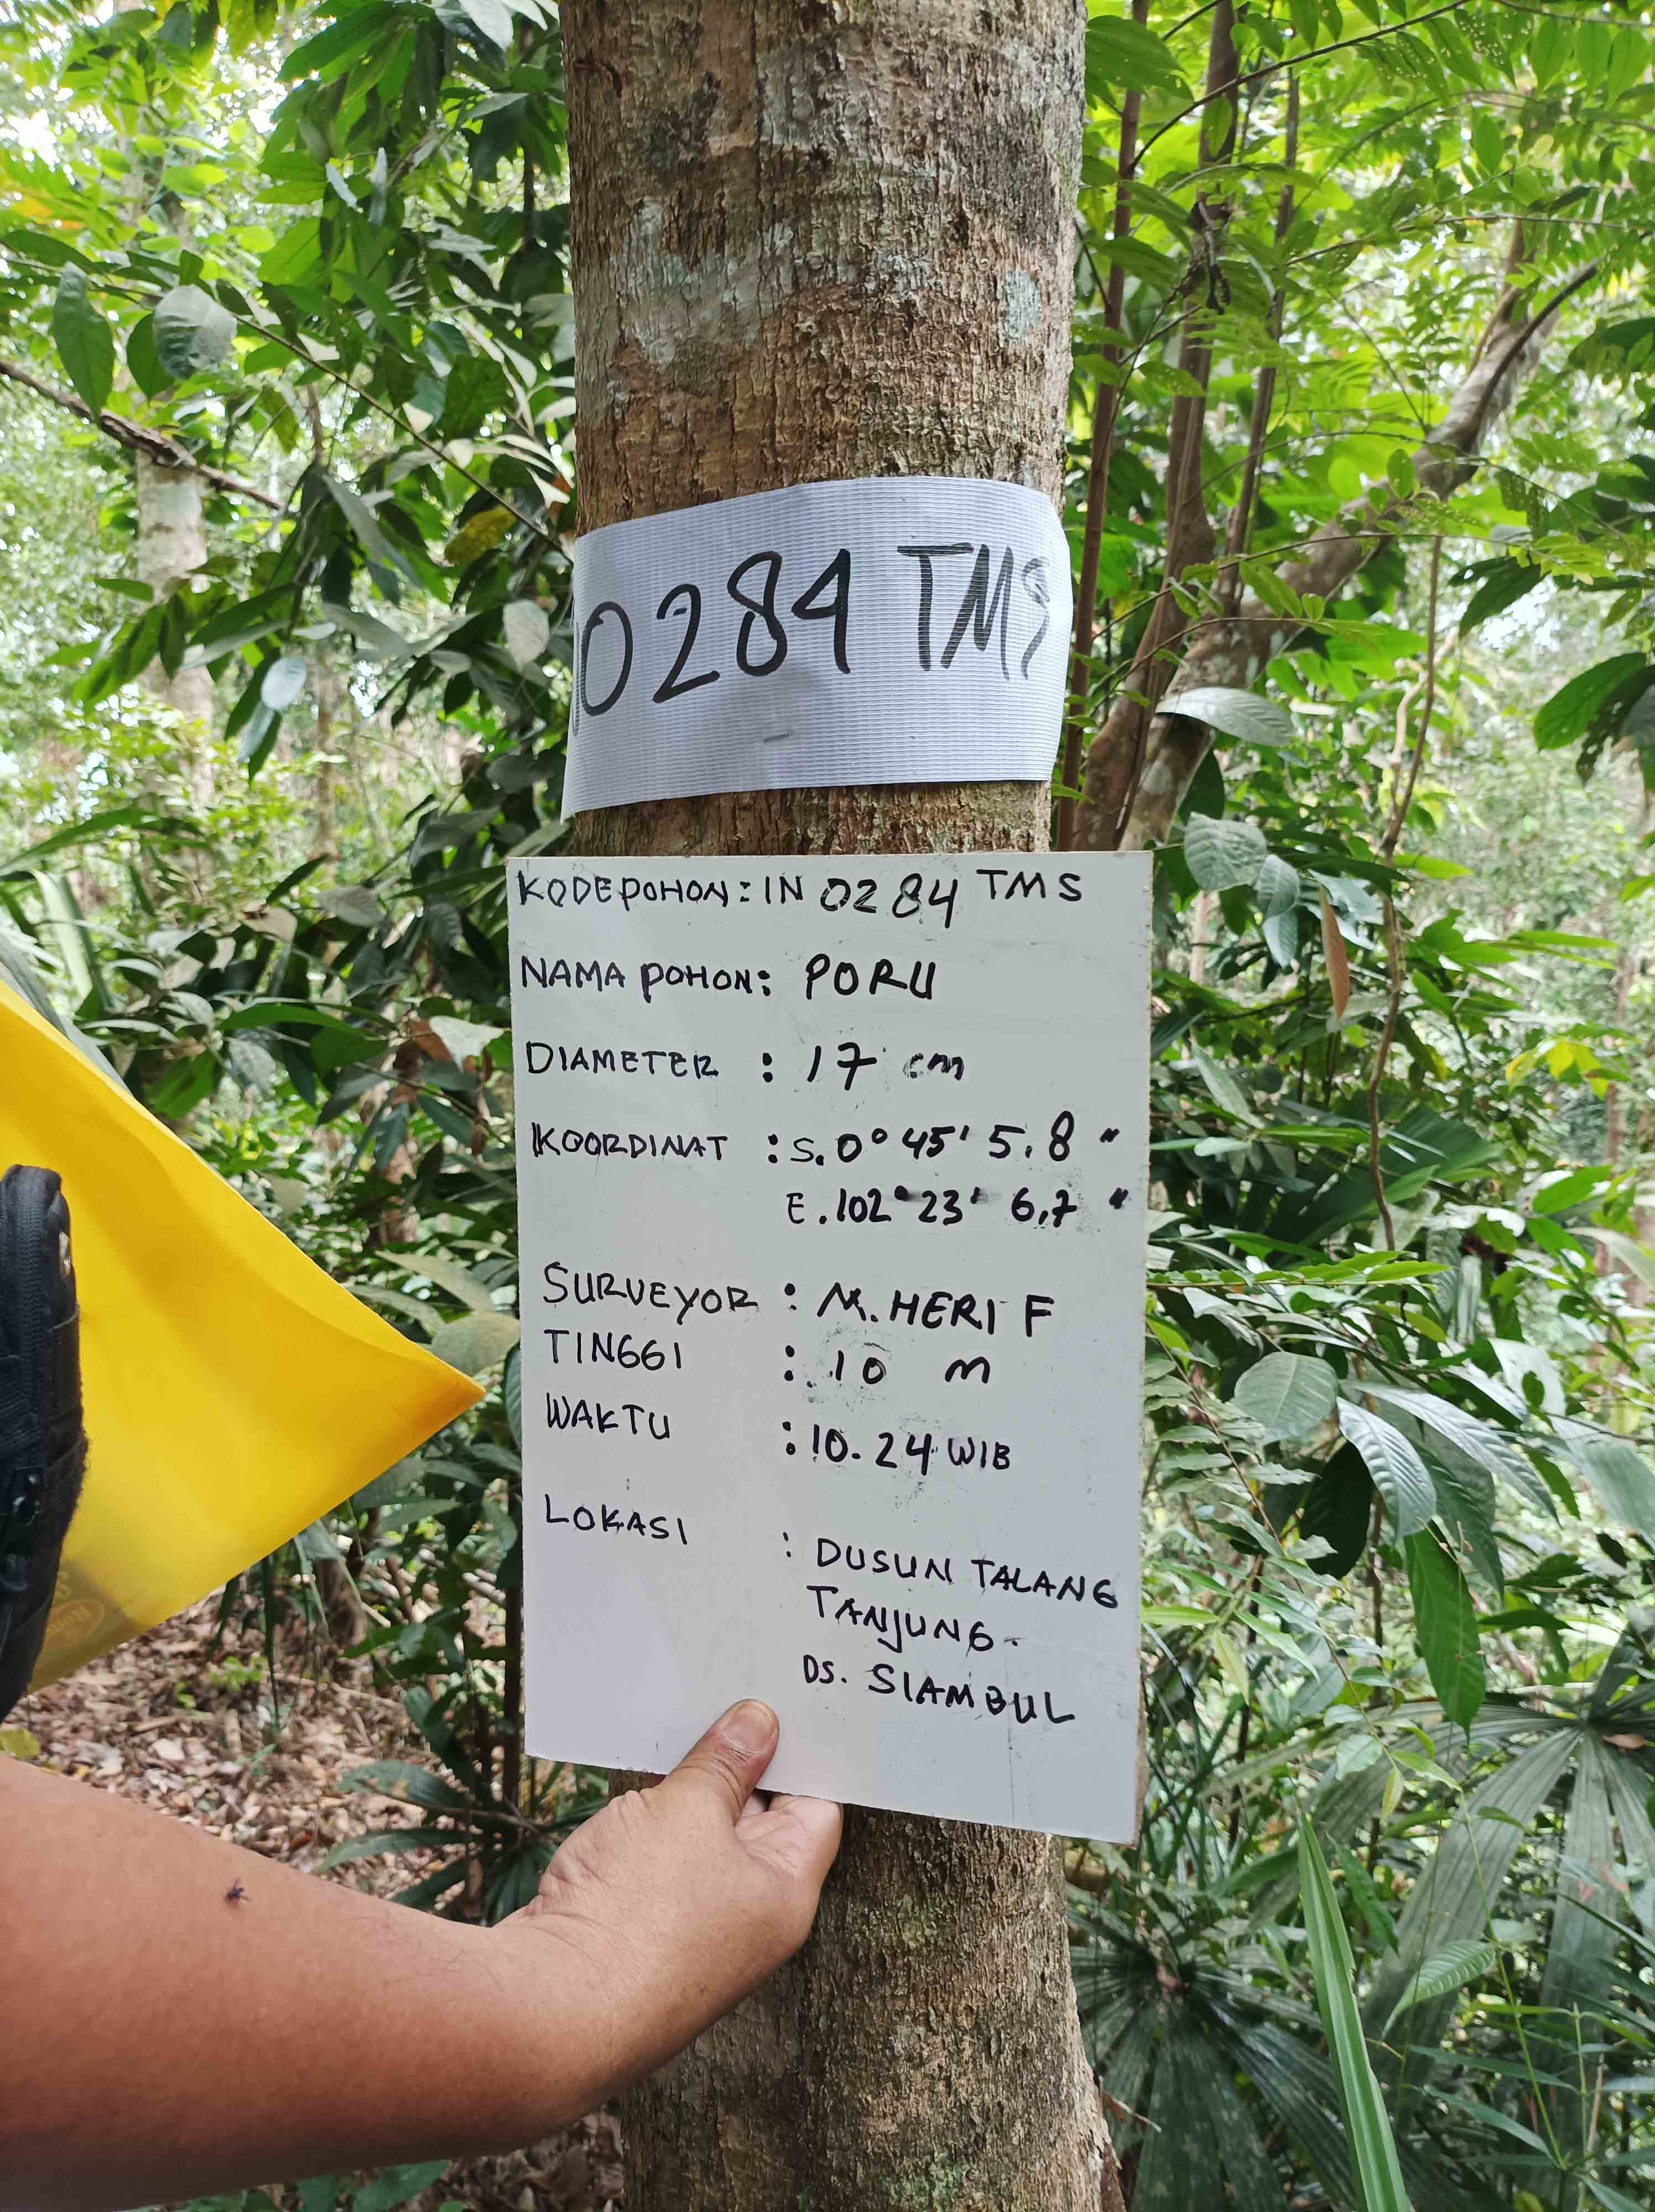 0284 TMS
KODE POHON : IN 0284 TMS
NAMA POHON : PORU
DIAMETER : 17 cm
KOORDINAT : S. 0° 45' 5.8 "
E. 102° 23' 6,7 "
SURVEYOR : M. HERI F
TINGGI : 10 m
WAKTU : 10.24 WIB
LOKASI : DUSUN TALANG
TANJUNG.
DS. SIAMBUL